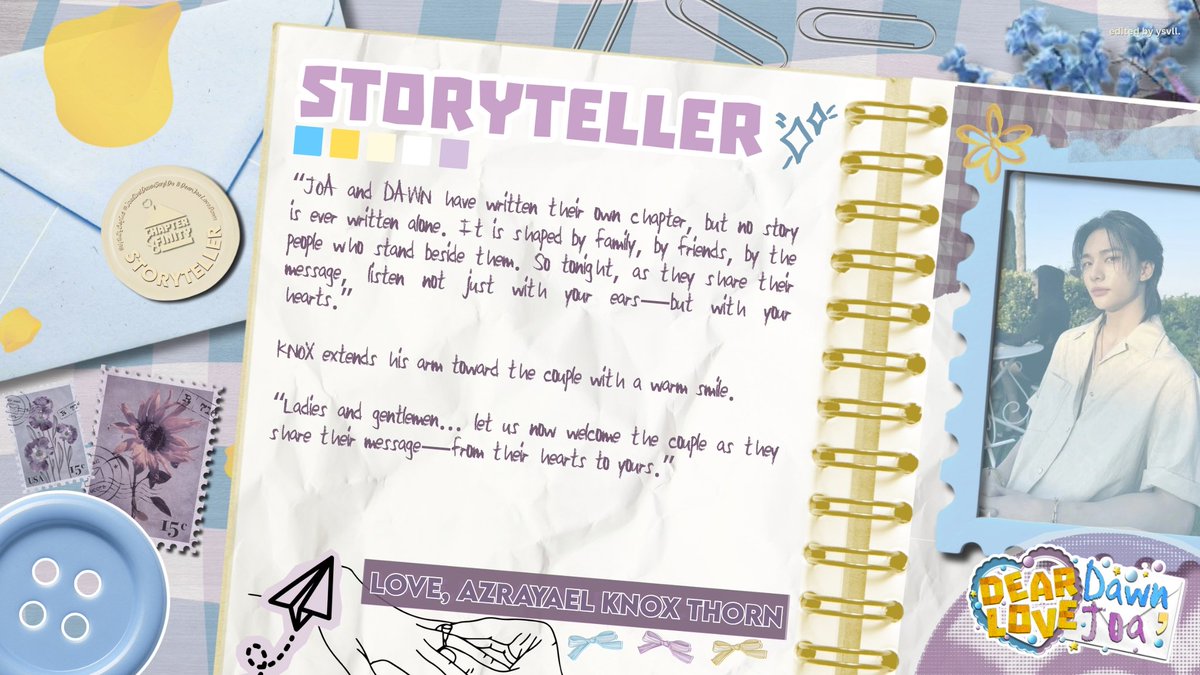 edited by ysvll.
STORYTELLER
"JOA and DAWN have written their own chapter, but no story
is ever written alone. It is shaped by family, by friends, by the
people who stand beside them. So tonight, as they share their
message, listen not just with your ears—but with your
hearts."
KNOX extends his arm toward the couple with a warm smile.
"Ladies and gentlemen... let us now welcome the couple as they
share their message—from their hearts to yours."
LOVE, AZRAYAEL KNOX THORN
CHAPTER
STORYTELLER
USA
15c
15c
DEAR
LOVE
Dawn
Joa